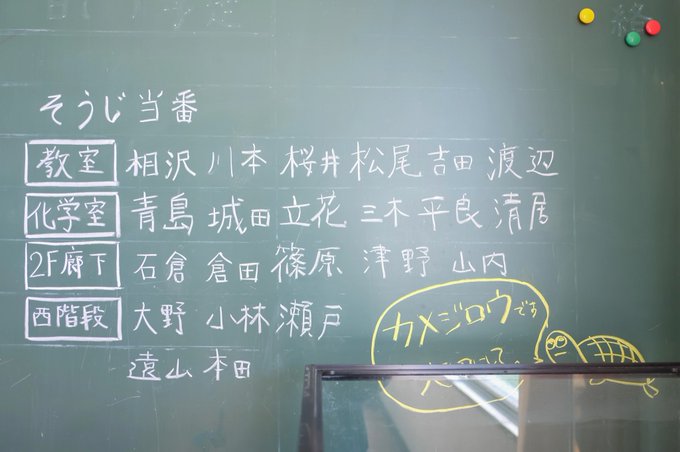 そうじ当番
教室 相沢 川本 桜井 松尾 吉田 渡辺
化学室 青島 城田 立花 三木 平良 清居
2F廊下 石倉 倉田 篠原 津野 山内
西階段 大野 小林 瀬戸
遠山 本田
カメジロウです